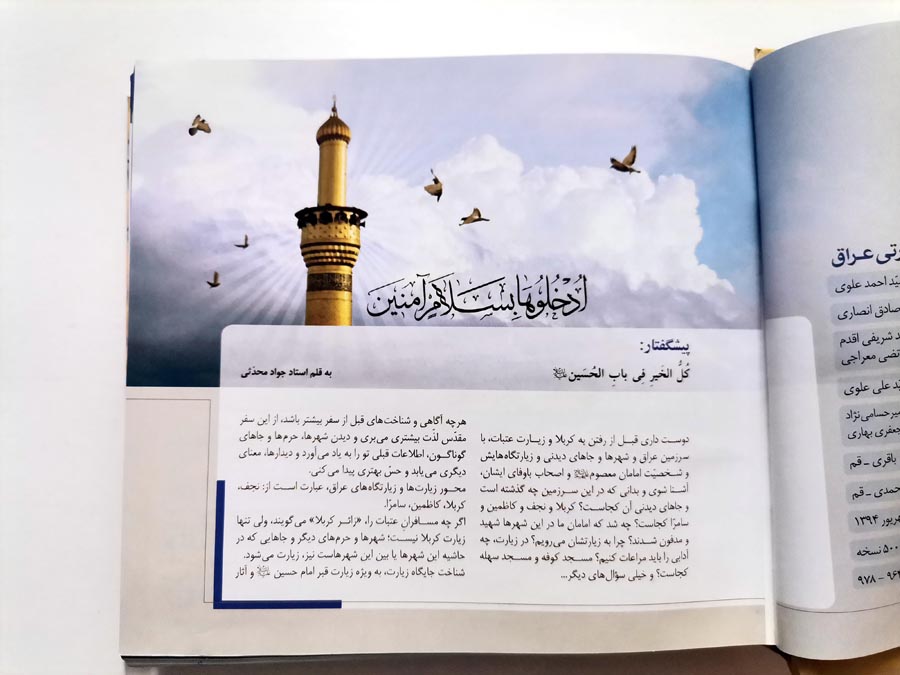 اُدْخُلُوهَا بِسَلَامٍ آمِنِينَ
پیشگفتار:
كُلُّ الخَيرِ فِي بابِ الحُسَين
به قلم استاد جواد محدثی
دوست داری قبل از رفتن به کربلا و زیارت عتبات، با
سرزمین عراق و شهرها و جاهای دیدنی و زیارتگاه‌هایش
و شخصیّت امامان معصوم و اصحاب باوفای ایشان،
آشنا شوی و بدانی که در این سرزمین چه گذشته است
و جاهای دیدنی آن کجاست؟ کربلا و نجف و کاظمین و
سامرّا کجاست؟ چه شد که امامان ما در این شهرها شهید
و مدفون شدند؟ چرا به زیارتشان می‌رویم؟ در زیارت، چه
آدابی را باید مراعات کنیم؟ مسجد کوفه و مسجد سهله
کجاست؟ و خیلی سؤال‌های دیگر...
هرچه آگاهی و شناخت‌های قبل از سفر بیشتر باشد، از این سفر
مقدّس لذّت بیشتری می‌بری و دیدن شهرها، حرم‌ها و جاهای
گوناگون، اطلاعات قبلی تو را به یاد می‌آورد و دیدارها، معنای
دیگری می‌یابد و حسّ بهتری پیدا می‌کنی.
محور زیارت‌ها و زیارتگاه‌های عراق، عبارت است از: نجف،
کربلا، کاظمین، سامرّا.
اگر چه مسافرانِ عتبات را، «زائـر کربلا» می‌گویند، ولی تنها
زیارت کربلا نیست؛ شهرها و حرم‌های دیگر و جاهایی که در
حاشیه این شهرها یا بین این شهرهاست نیز، زیارت می‌شود.
شناخت جایگاه زیارت، به ویژه زیارت قبر امام حسین و آثار
رتی عراق
سیّد احمد علوی
صادق انصاری
شریفی اقدم
تضی معراجی
علی علوی
میرحسامی‌نژاد
جعفری بهاری
باقری - قم
حمدی - قم
۱۳۹۴
نسخه
۹۷۸ - ۹۶